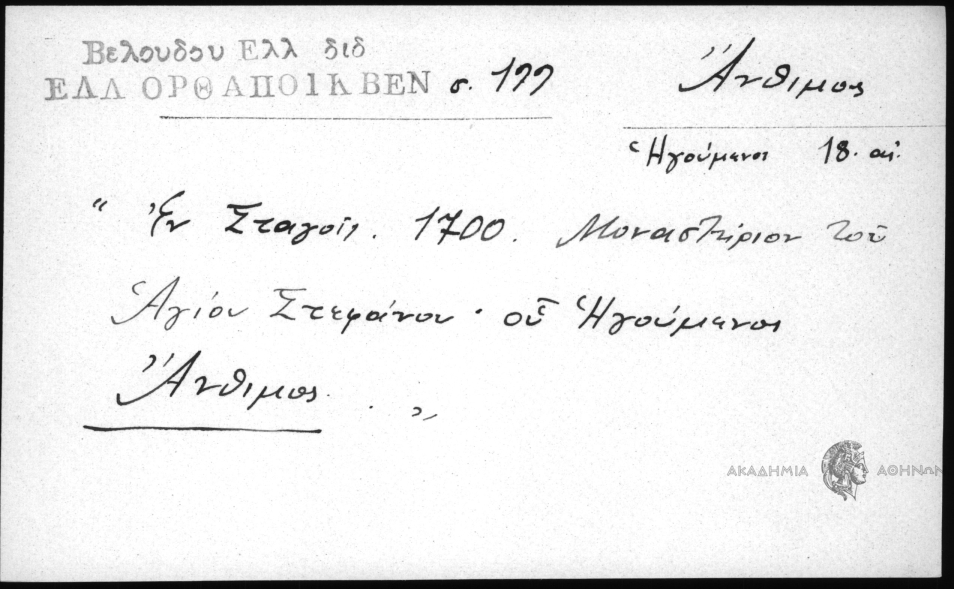 Βελουδου Ελλ διδ
ΕΛΛ ΟΡΘ ΑΠΟΙΚ ΒΕΝ σ. 199
Ἄνθιμος
Ἡγούμενος 18. αἰ.
“ Ἐν Σταγοῖς. 1700. Μοναστήριον τοῦ
Ἁγίου Στεφάνου · οὗ Ἡγούμενος
Ἄνθιμος. . „
ΑΚΑΔΗΜΙΑ ΑΘΗΝΩΝ